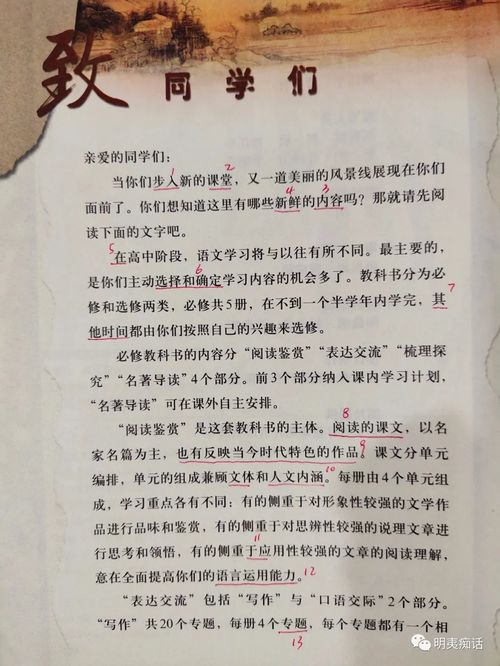 致同学们
亲爱的同学们：
当你们步入新的课堂，又一道美丽的风景线展现在你们
面前了。你们想知道这里有哪些新鲜的内容吗？那就请先阅
读下面的文字吧。
在高中阶段，语文学习将与以往有所不同。最主要的，
是你们主动选择和确定学习内容的机会多了。教科书分为必
修和选修两类，必修共5册，在不到一个半学年内学完，其
他时间都由你们按照自己的兴趣来选修。
必修教科书的内容分“阅读鉴赏”“表达交流”“梳理探
究”“名著导读”4个部分。前3个部分纳入课内学习计划，
“名著导读”可在课外自主安排。
“阅读鉴赏”是这套教科书的主体。阅读的课文，以名
家名篇为主，也有反映当今时代特色的作品。课文分单元
编排，单元的组成兼顾文体和人文内涵。每册由4个单元组
成，学习重点各有不同：有的侧重于对形象性较强的文学作
品进行品味和鉴赏，有的侧重于对思辨性较强的说理文章进
行思考和领悟，有的侧重于应用性较强的文章的阅读理解，
意在全面提高你们的语言运用能力。
“表达交流”包括“写作”与“口语交际”2个部分。
“写作”共20个专题，每册4个专题，每个专题都有一个相
1
2
3
4
5
6
7
8
9
10
11
12
13
明夷痴话